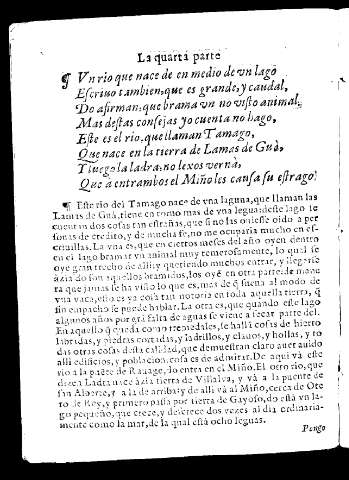 La quarta parte
¶ Vn rio que nace de en medio de vn lagõ
Escriuo tambien, que es grande, y caudal,
Do afirman, que brama vn no visto animal,
Mas destas consejas yo cuenta no hago,
Este es el rio, que llaman Tamago,
Que nace en la tierra de Lamas de Guà,
Y luego la ladra, no lexos vernà,
Que a entrambos el Miño les causa su estrago.
¶ Este rio del Tamago nace de vna laguna, que llaman las
Lamas de Guà, tiene en torno mas de vna legua: deste lago se
cuentan dos cosas tan estrañas, que si no las ouiesse oido a per
sonas de credito, y de mucha fe, no me ocuparia mucho en es-
criuillas. La vna es, que en ciertos meses del año oyen dentro
en el lago bramar vn animal muy temerosamente, lo qual se
oye gran trecho de alli: y queriendo muchos entrar, y llegarse
àzia do son aquellos bramidos, los oyẽ en otra parte: de mane
ra que jamas se ha visto lo que es, mas de q̃ suena al modo de
vna vaca, esto es ya cosa tan notoria en toda aquella tierra, q̃
sin empacho se puede hablar. La otra es, que quando este lago
algunos años por grã falta de aguas se viene a secar parte del.
En aquello q̃ queda como trepiedales, se hallã cosas de hierro
labradas, y piedras cortadas, y ladrillos, y clauos, y hollas, y to
das otras cosas desta calidad, que demuestran claro auer auido
alli edificios, y poblacion, cosa es de admirar. De aqui và este
rio a la puẽte de Rauago, do entra en el Miño. El otro rio, que
dizen Ladra nace àzia tierra de Villalua, y và a la puente de
san Alberte, y a la de arriba: y de alli và al Miño, cerca de Ote
ro de Rey, y primero passa por tierra de Gayoso, do està vn la-
go pequeño, que crece, y descrece dos vezes al dia ordinaria-
mente como la mar, de la qual està ocho leguas.
Pongo